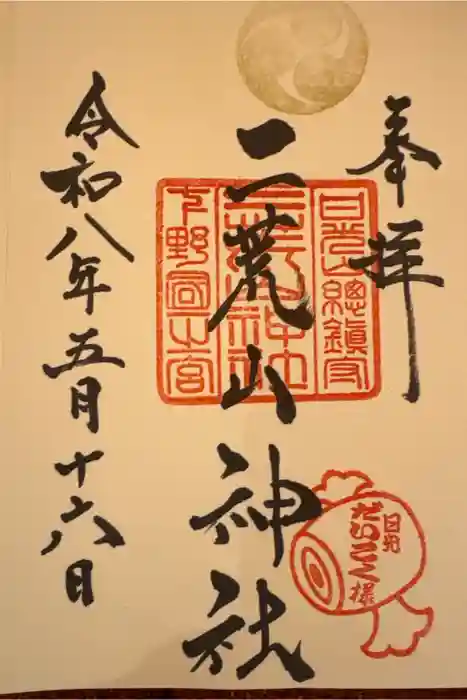 奉拝
日光山總鎮守
二荒山神社
下野國一之宮
二荒山神社
日光
だいこく様
令和八年五月十六日